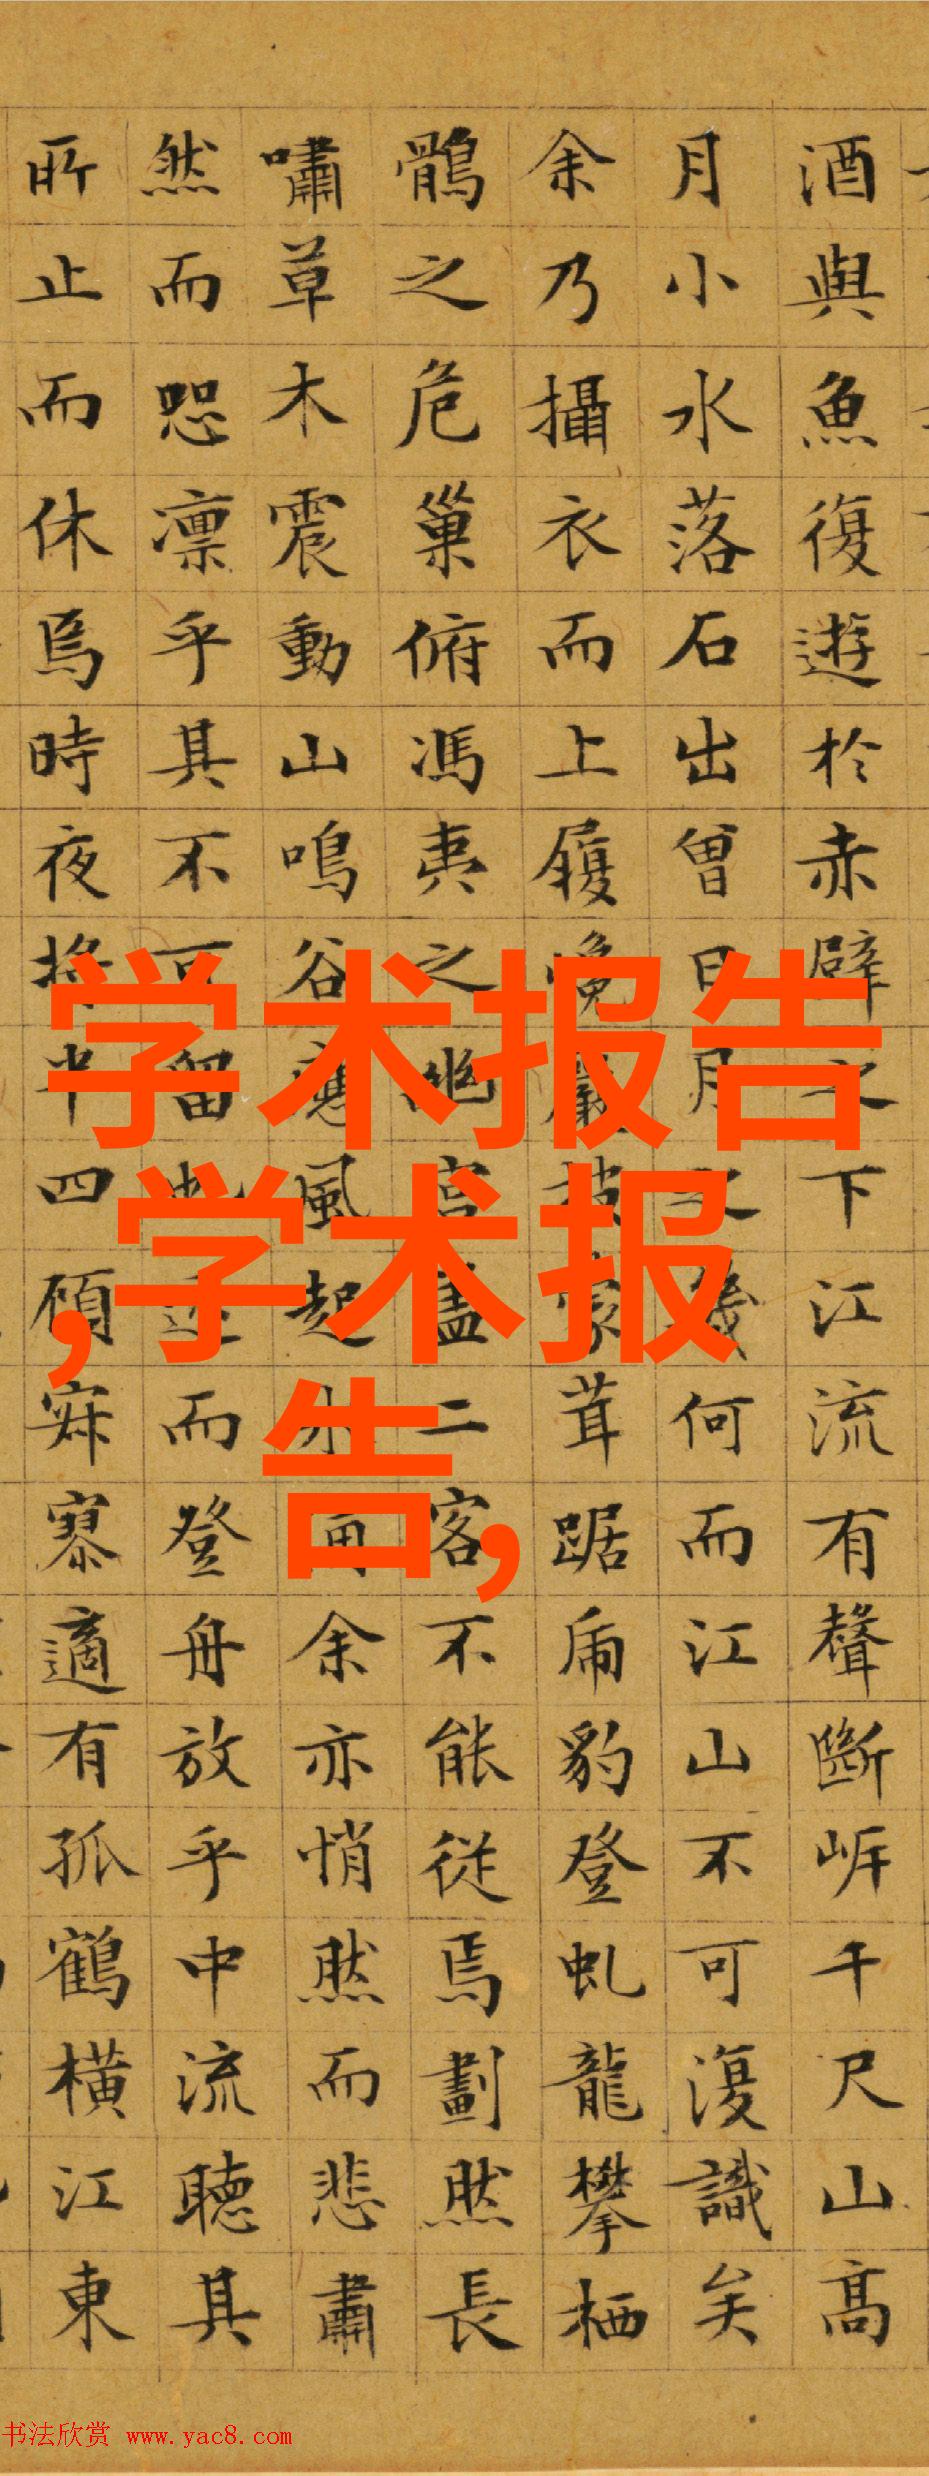 酒與魚復遊於赤壁之下江流有聲斷岸千尺山高
月小水落石出曾日月之幾何而江山不可復識矣
余乃攝衣而上履巉巖披蒙茸踞虎豹登虬龍攀栖
鶻之危巢俯馮夷之幽宮蓋二客不能從焉劃然長
嘯草木震動山鳴谷應風起水涌余亦悄然而悲肅
然而恐凛乎其不可留也返而登舟放乎中流聽其
所止而休焉時夜將半四顧寂寥適有孤鶴橫江東
学术报告
,学术报
告,
书法欣赏 www.yac8.com